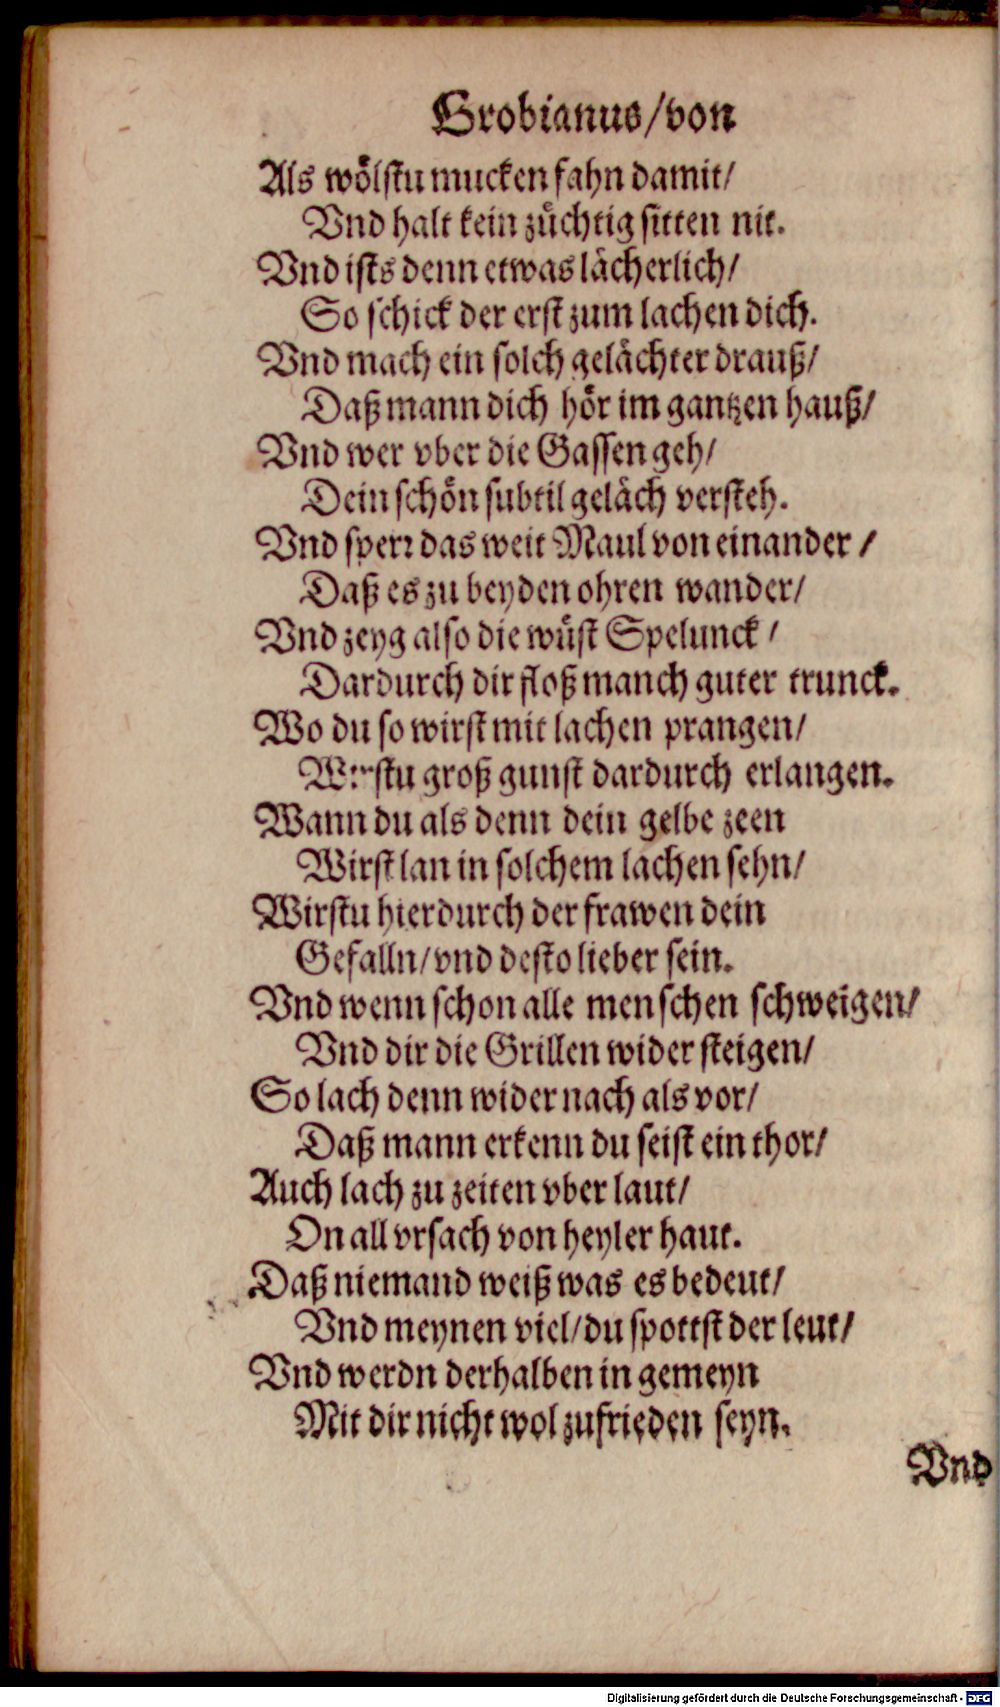 Grobianus/von
Als woͤlstu mucken fahn damit/
Vnd halt kein zuͤchtig sitten nit.
Vnd ists denn etwas laͤcherlich/
So schick der erst zum lachen dich.
Vnd mach ein solch gelaͤchter drauß/
Daß mann dich hoͤr im gantzen hauß/
Vnd wer vber die Gassen geh/
Dein schoͤn subtil gelaͤch versteh.
Vnd sperꝛ das weit Maul von einander/
Daß es zu beyden ohren wander/
Vnd zeyg also die wuͤst Spelunck/
Dardurch dir floß manch guter trunck.
Wo du so wirst mit lachen prangen/
Wirstu groß gunst dardurch erlangen.
Wann du als denn dein gelbe zeen
Wirst lan in solchem lachen sehn/
Wirstu hierdurch der frawen dein
Gefalln/vnd desto lieber sein.
Vnd wenn schon alle menschen schweigen/
Vnd dir die Grillen wider steigen/
So lach denn wider nach als vor/
Daß mann erkenn du seist ein thor/
Auch lach zu zeiten vber laut/
On all vrsach von heyler haut.
Daß niemand weiß was es bedeut/
Vnd meynen viel/du spottst der leut/
Vnd werdn derhalben in gemeyn
Mit dir nicht wol zufrieden seyn.
Vnd
Digitalisierung gefördert durch die Deutsche Forschungsgemeinschaft - DFG